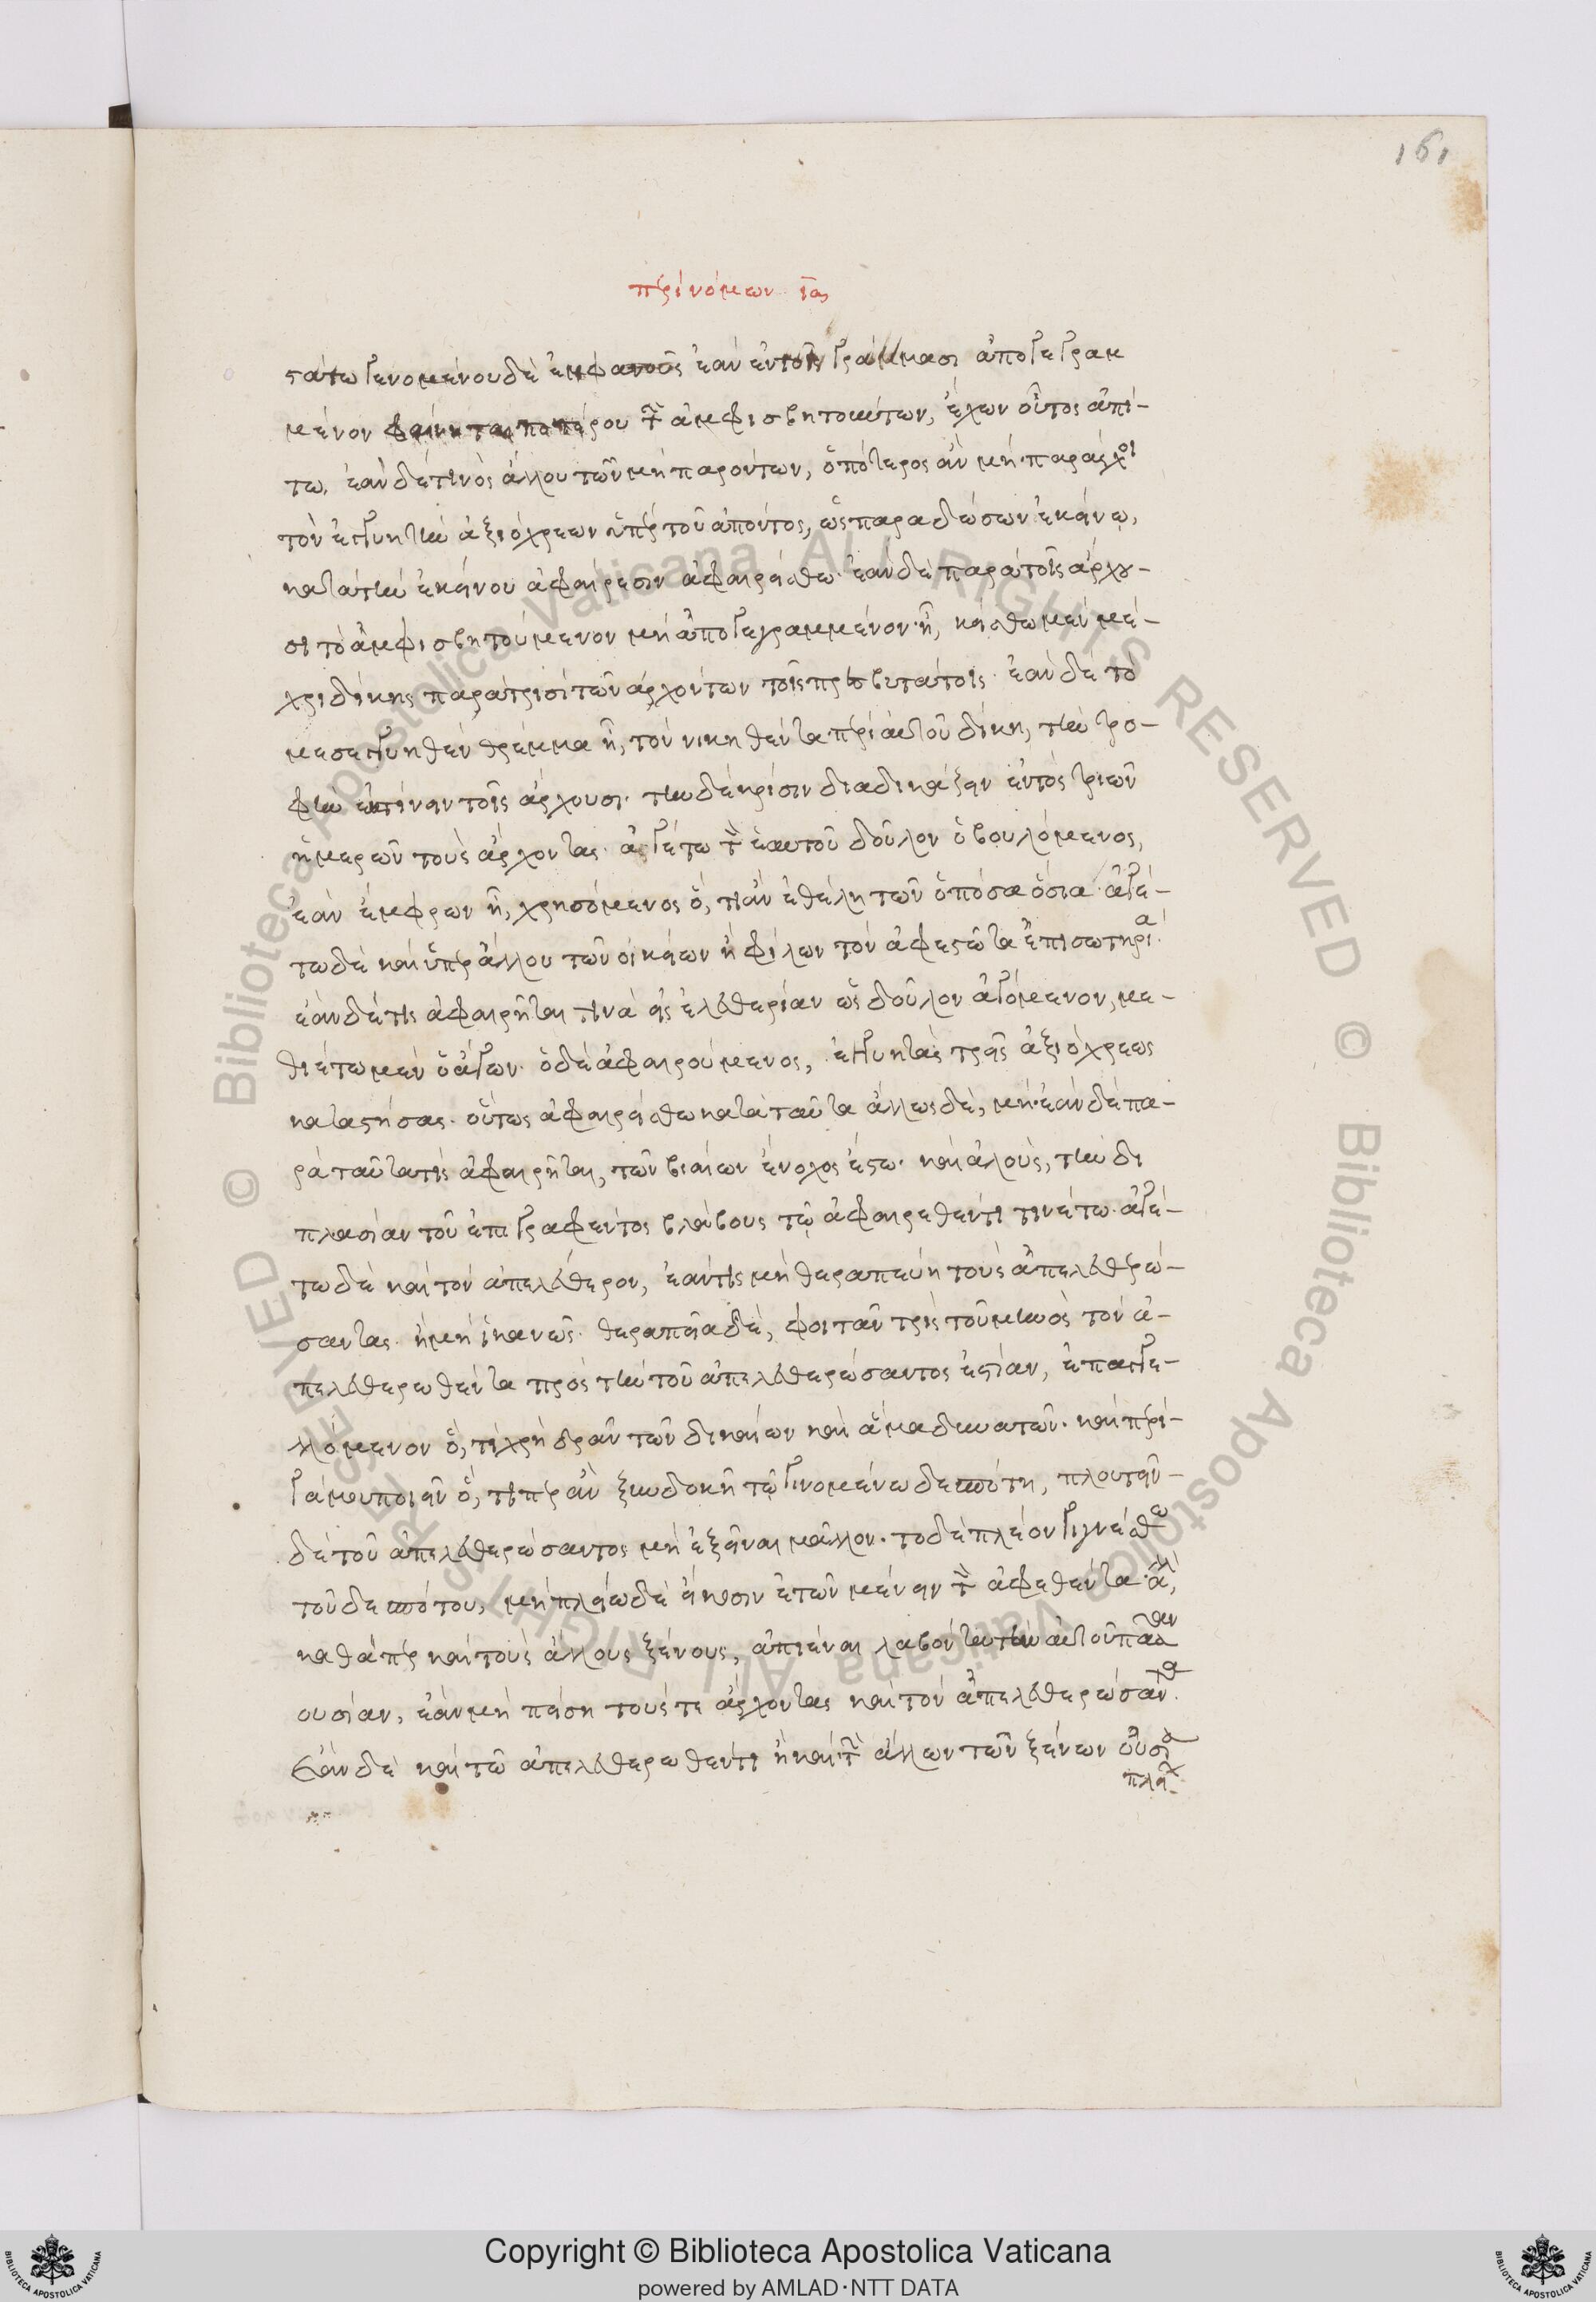 161
περὶ νόμων ια
στάτω γενομένου δὲ ἐμφανοῦς ἐὰν ἐν τοῖς γράμμασι ἀπογεγραμ
μένον φαίνηται ποτέρου τῶν ἀμφισβητούντων, ἔχων οὗτος ἀπί-
τω. ἐὰν δέ τινος ἄλλου τῶν μὴ παρόντων, ὁπότερος ἂν μὴ παράσχοι
τὸν ἐγγυητὴν ἀξιόχρεων ὑπὲρ τοῦ ἀπόντος, ὡς παραδώσων ἐκείνῳ,
κατὰ τὴν ἐκείνου ἀφαίρεσιν ἀφαιρείσθω. ἐὰν δὲ παρὰ τοῖς ἄρχου-
σι τὸ ἀμφισβητούμενον μὴ ἀπογεγραμμένον ᾖ, κείσθω μὲν μέ-
χρι δίκης παρὰ τρισὶ τῶν ἀρχόντων τοῖς πρεσβυτάτοις. ἐὰν δὲ τὸ
μεσεγγυηθὲν θρέμμα ᾖ, τὸν νικηθέντα περὶ αὐτοῦ δίκη, τὴν τρο-
φὴν ἐκτίνειν τοῖς ἄρχουσι. τὴν δὲ κρίσιν διαδικάζειν ἐντὸς τριῶν
ἡμερῶν τοὺς ἄρχοντας. ἀγέτω τὸν ἑαυτοῦ δοῦλον ὁ βουλόμενος,
ἐὰν ἔμφρων ᾖ, χρησόμενος ὅ, τι ἂν ἐθέλη τῶν ὁπόσα ὅσια. ἀγέ-
τω δὲ καὶ ὑπὲρ ἄλλου τῶν οἰκείων ἢ φίλων τὸν ἀφεστῶτα ἐπὶ σωτηρία.
ἐὰν δέ τις ἀφαιρῆται τινὰ εἰς ἐλευθερίαν ὡς δοῦλον ἀγόμενον, με-
θιέτω μὲν ὁ ἄγων. ὁ δὲ ἀφαιρούμενος, ἐγγυητὰς τρεῖς ἀξιόχρεως
καταστήσας. οὕτως ἀφαιρείσθω κατὰ ταῦτα ἄλλως δὲ, μή. ἐὰν δὲ πα-
ρὰ ταῦτα τίς ἀφαιρῆται, τῶν βιαίων ἔνοχος ἔστω. καὶ ἁλοὺς, τὴν δι
πλασίαν τοῦ ἐπιγραφέντος βλάβους τῷ ἀφαιρεθέντι τινέτω. ἀγέ-
τω δὲ καὶ τὸν ἀπελεύθερον, ἐάν τις μὴ θεραπεύη τοὺς ἀπελευθερώ-
σαντας. ἢ μὴ ἱκανῶς. θεραπεία δὲ, φοιτᾶν τρὶς τοῦ μηνὸς τὸν ἀ-
πελευθερωθέντα πρὸς τὴν τοῦ ἀπελευθερώσαντος ἑστίαν, ἐπαγγε-
λλόμενον ὅ, τι χρὴ δρᾶν τῶν δικαίων καὶ ἅμα δυνατῶν. καὶ περὶ-
γάμου ποιεῖν ὅ, τιπερ ἂν ξυνδοκῇ τῷ γινομένω δεσπότη, πλουτεῖν-
δὲ τοῦ ἀπελευθερώσαντος μὴ ἐξεῖναι μᾶλλον. τὸ δὲ πλέον γιγνέσθω
τοῦ δεσπότου, μὴ πλείω δὲ εἴκοσιν ἐτῶν μένειν τὸν ἀφεθέντα. ἀλλὰ,
καθάπερ καὶ τοὺς ἄλλους ξένους, ἀπιέναι λαβόντα τὴν αὐτοῦ πᾶσαν
ουσίαν, ἐὰν μὴ πείση τούς τε ἄρχοντας καὶ τὸν ἀπελευθερώσαντα.
ἐὰν δὲ καὶ τῶ ἀπελευθερωθέντι ἢ καὶ τῶν ἄλλων τῶν ξένων οὐσία
πλεί
Copyright © Biblioteca Apostolica Vaticana
powered by AMLAD·NTT DATA